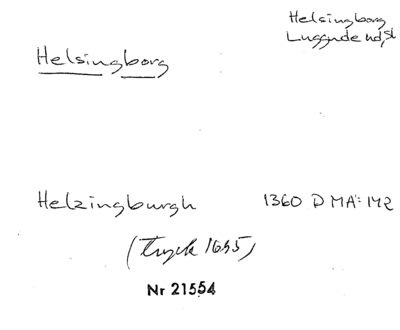 Helsingborg
Luggude hd, Sk
Helsingborg
Helzingburgh 1360 DMA: 142
(tryck 1695)
Nr 21554